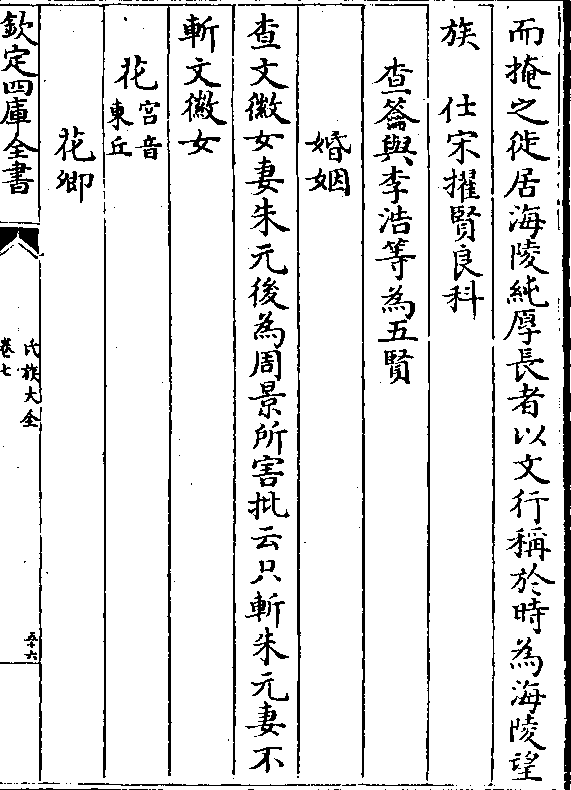 而掩之徙居海陵純厚長者以文行稱於時為海陵望
族　仕宋擢賢良科
查籥與李浩等為五賢
婚姻
查文徽女妻朱元後為周景所害批云只斬朱元妻不
斬文徽女
花　宮音
東丘
花卿
欽定四庫全書
氏族大全
卷七
五十六